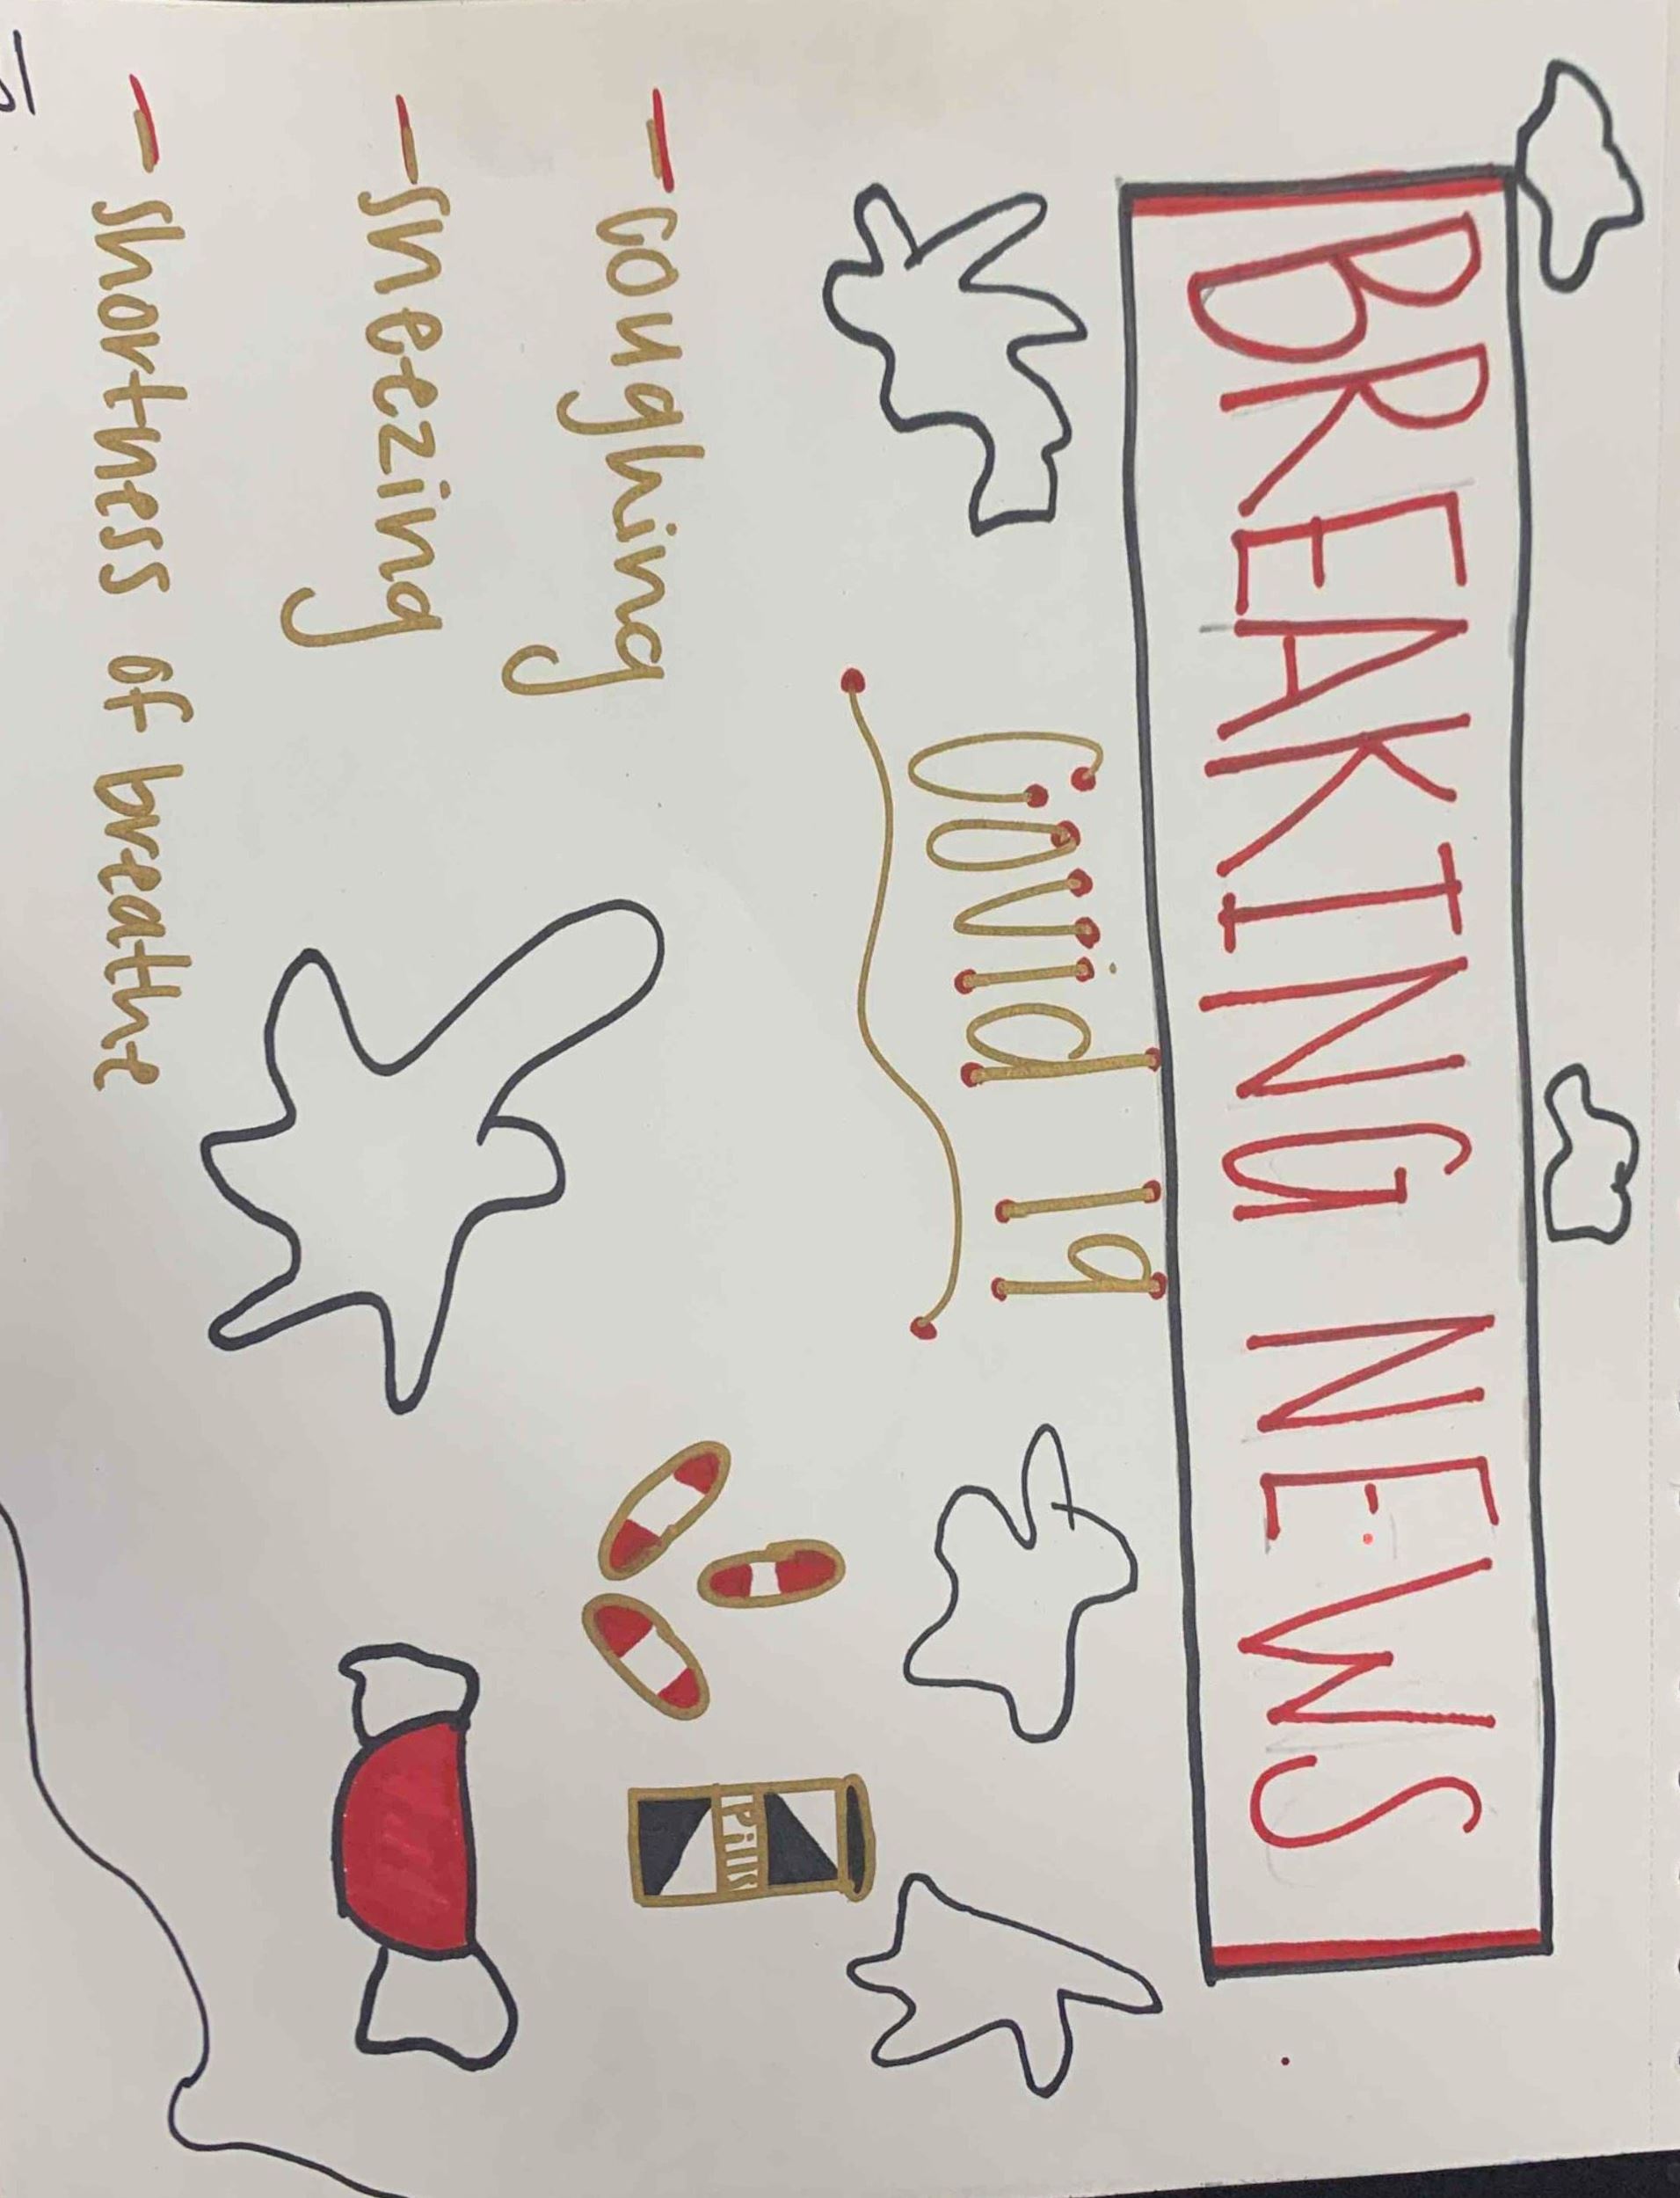 BREAKING NEWS
Covid 19
- coughing
- sneezing
- shortness of breathe
Pills